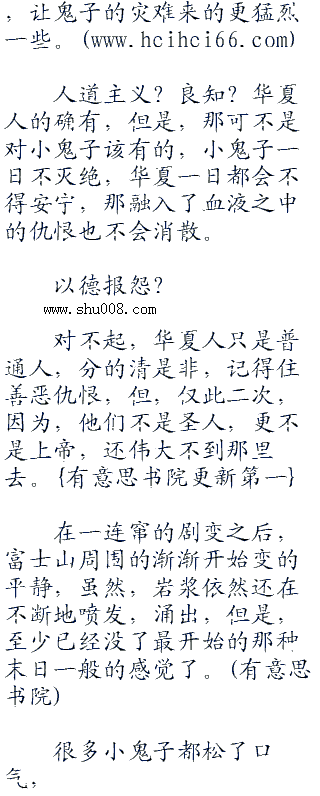 ，让鬼子的灾难来的更猛烈
一些。(www.hcihci66.com)
人道主义？良知？华夏
人的确有，但是，那可不是
对小鬼子该有的，小鬼子一
日不灭绝，华夏一日都会不
得安宁，那融入了血液之中
的仇恨也不会消散。
以德报怨？
www.shu008.com
对不起，华夏人只是普
通人，分的清是非，记得住
善恶仇恨，但，仅此二次，
因为，他们不是圣人，更不
是上帝，还伟大不到那里
去。{有意思书院更新第一}
在一连窜的剧变之后，
富士山周围的渐渐开始变的
平静，虽然，岩浆依然还在
不断地喷发，涌出，但是，
至少已经没了最开始的那种
末日一般的感觉了。(有意思
书院)
很多小鬼子都松了口
气，